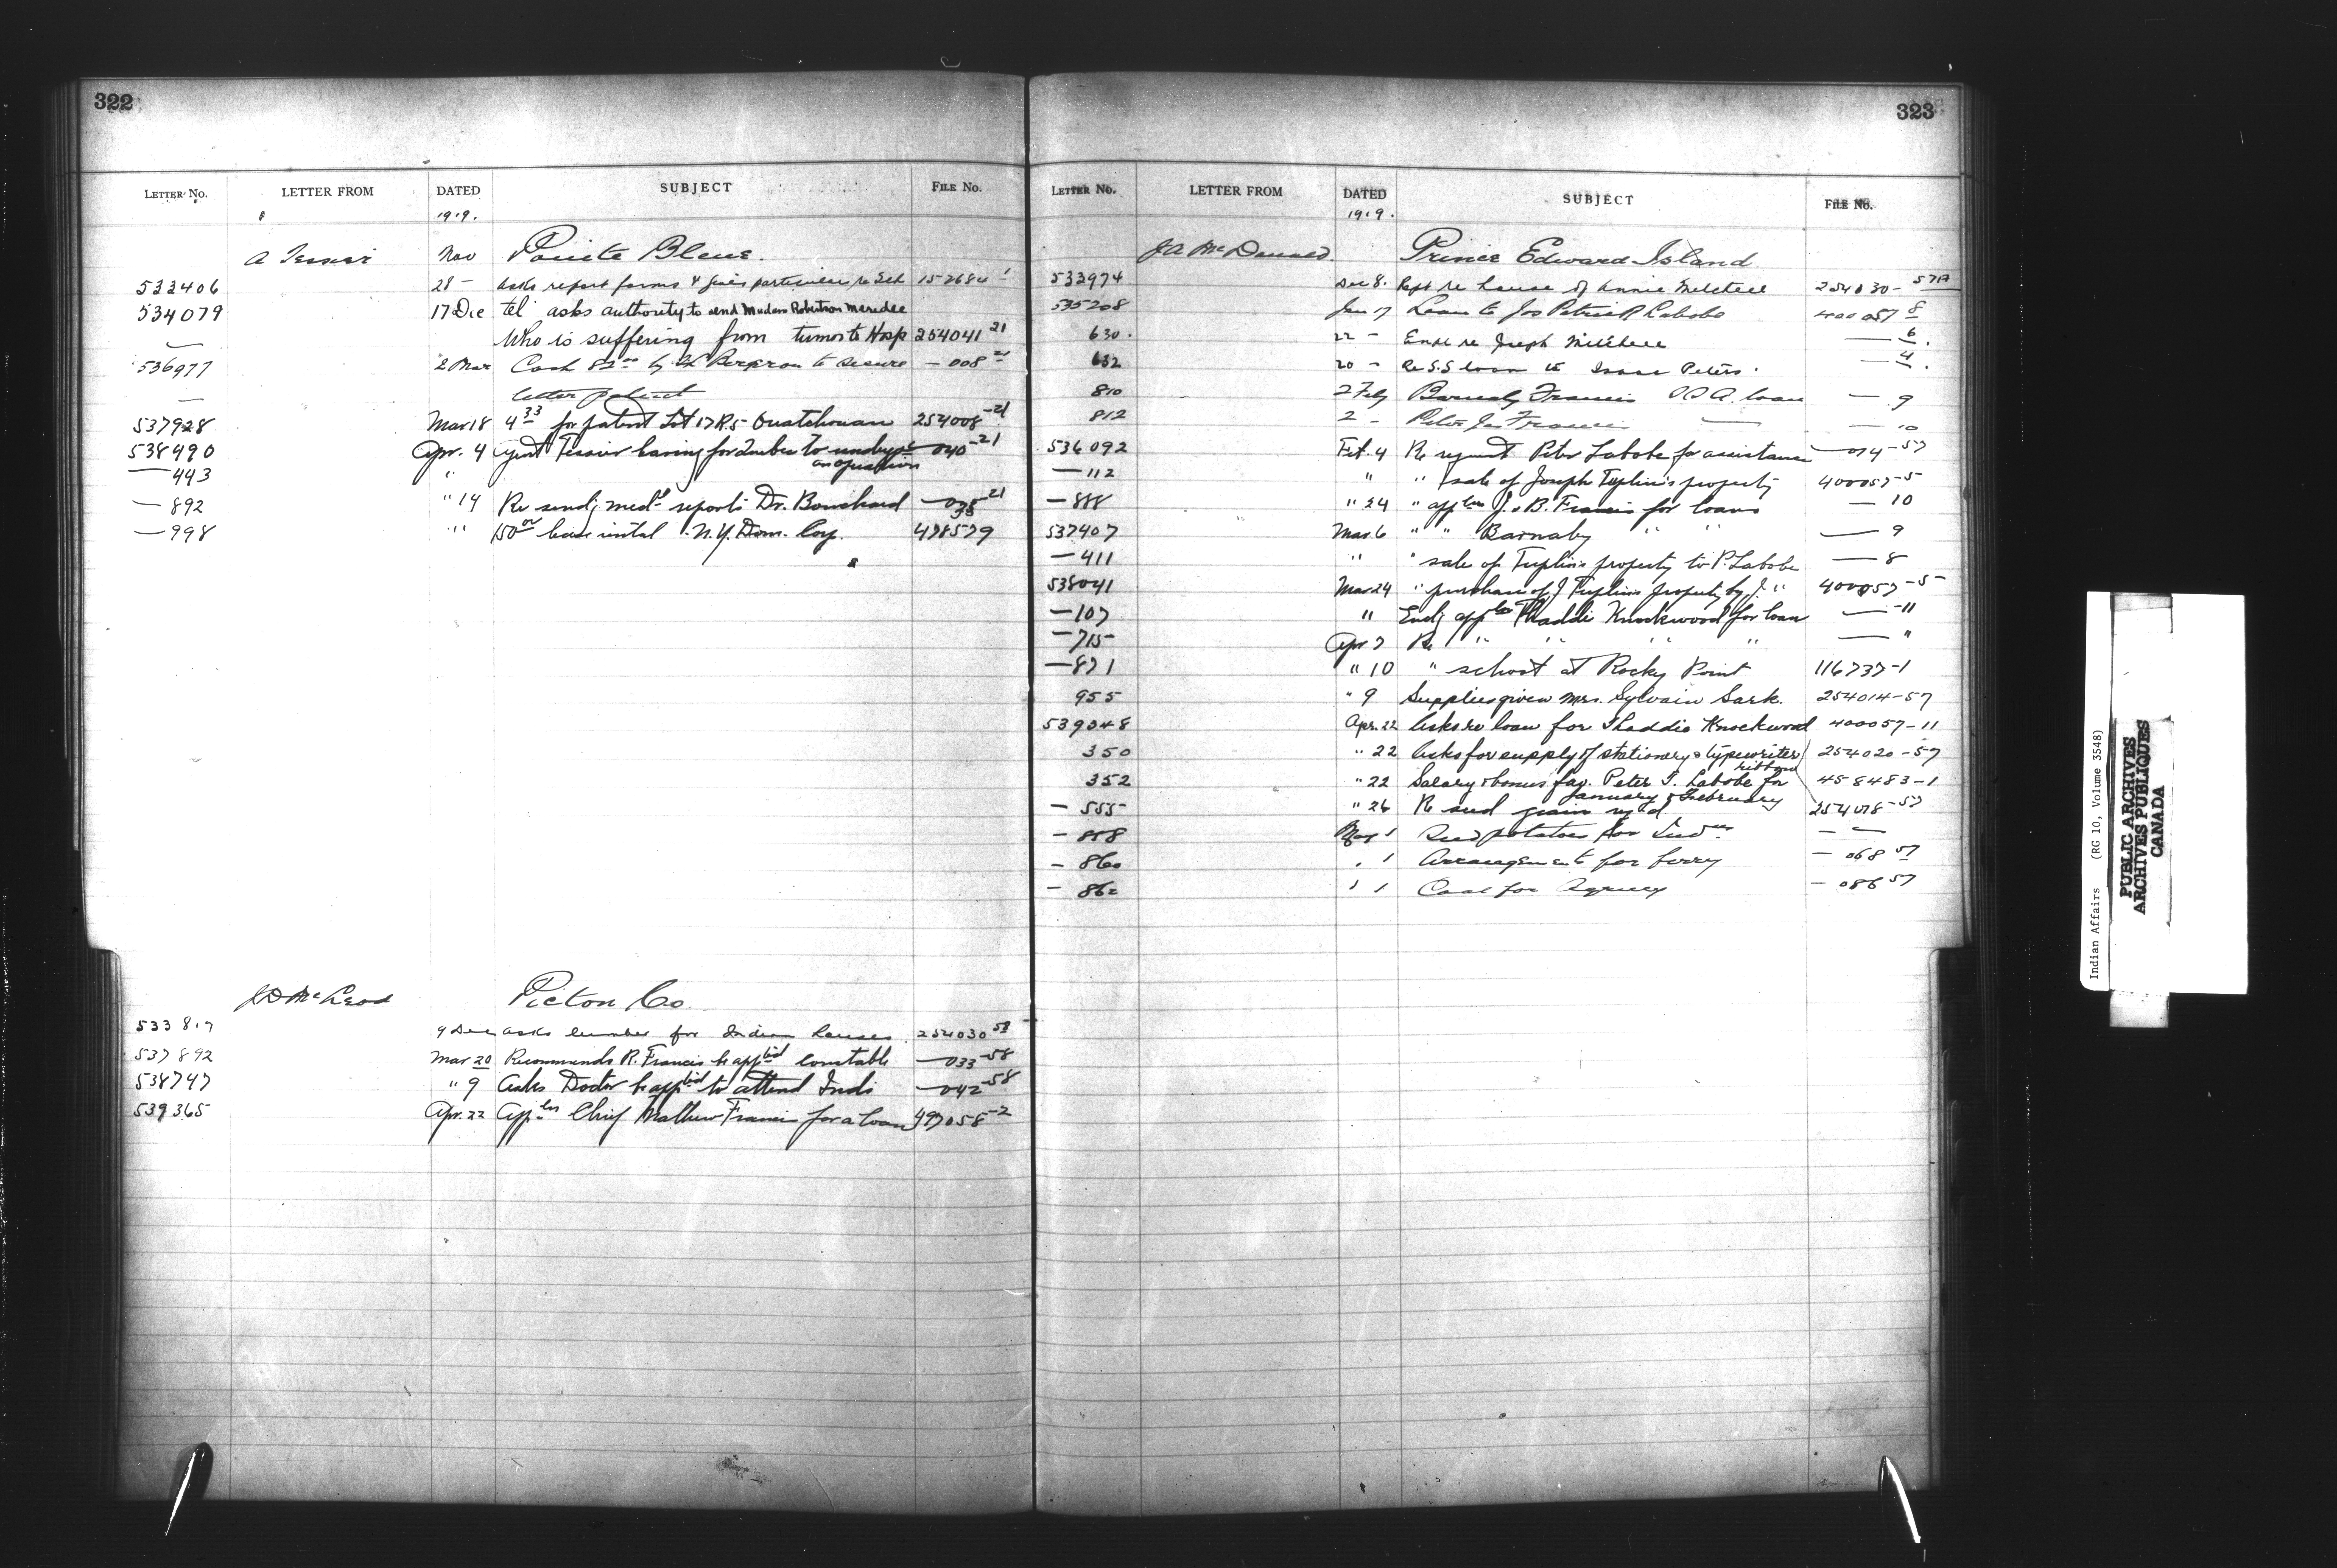 322
LETTER No. LETTER FROM DATED SUBJECT FILE No.
1919.
A Tessier Nov Pointe Bleue.
533406 28 – asks report forms & gives particulars re Sch 152684 1
534079 17 Dec tel asks authority to send Madam Robertson Meredee
Who is suffering from tumor to Hosp 254041 21
536977 2 Mar Cash to secure – 008 21
letter patent
537928 Mar 18 4 33 for patent Lot 17 R.5 Ouatchouan 254008 -21
538490 Apr. 4 Agent Tessier leaving for Quebec to undergo — 040 -21
— 443 " an operation
— 892 " 14 Re sendg medl reports Dr. Bouchard
— 998 " 150 00 lease rental N.Y. Dom. Coy. 478579
J D McLeod Pictou Co.
533817 9 Dec asks lumber for Indian houses 254030 58
537892 Mar 20 Recommends R. Francis be apptd constable — 033 -58
538747 " 9 Asks Doctor be apptd to attend Inds — 042 -58
539365 Apr. 22 Appln Chief Mathew Francis for a loan 497058 -2
323
LETTER No. LETTER FROM DATED SUBJECT FILE No.
1919.
J A McDonald. Prince Edward Island
533974 Dec 8. Rept re house of Annie Mitchell 254030 - 57A
535208 Jan 17 Loan to Jos Patrick Labobe 400057 8
630. 22 – Enqs re Joseph Mitchell — 6.
632 20 – Re S.S loan to Isaac Peters. — 4.
810 2 Feby Barnaby Francis loan — 9
812 2 – Peter Jas Francis — — 10
536092 Feb. 4 Re request Peter Labobe for assistance — 014 -57
— 112 " " sale of Joseph Tuplin's property 400057 -5
— 888 " 24 " appln J. B. Francis for loans — 10
537407 Mar. 6 " " Barnaby " " — 9
— 411 " " sale of Tuplin's property to P. Labobe — 8
538041 Mar 24 " purchase of J Tuplin's property by J. " 400057 -5-
— 107 " Enclg appln Thaddie Knockwood for loan — -11
— 715 Apr 7 Re " " " " — "
— 871 " 10 " school at Rocky Point 116737-1
955 " 9 Supplies given Mrs. Sylvain Sark. 254014-57
539048 Apr. 22 Asks re loan for Thaddie Knockwood 400057-11
350 " 22 Asks for supply of stationery & typewriter 254020-57
ribbons
352 " 22 Salary & bonus fav. Peter J. Labobe for 458483-1
January & February
— 555 " 26 Re seed grain reqd 254018 -57
— 858 May 1 Seed potatoes for Indns — —
— 860 . 1 Arrangements for ferry — 068 57
— 862 1 1 Coal for Agency — 086 57
Indian Affairs (RG 10, Volume 3548)
PUBLIC ARCHIVES
ARCHIVES PUBLIQUES
CANADA